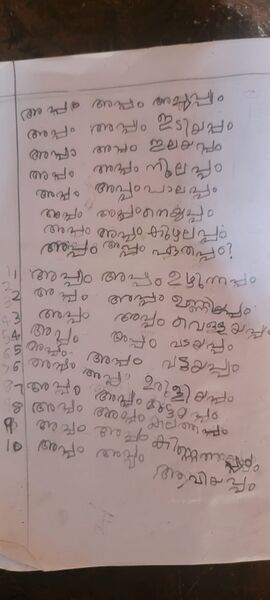 അപ്പം അപ്പം അച്ചപ്പം
അപ്പം അപ്പം ഇടിയപ്പം
അപ്പം അപ്പം ഇലയപ്പം
അപ്പം അപ്പം നൂലപ്പം
അപ്പം അപ്പം പാലപ്പം
അപ്പം അപ്പം നെയ്യപ്പം
അപ്പം അപ്പം കുഴലപ്പം
അപ്പം അപ്പം ഏതപ്പം?
1 അപ്പം അപ്പം ഉഴുന്നപ്പം
2 അപ്പം അപ്പം ഉണ്ണിയപ്പം
3 അപ്പം അപ്പം വെള്ളയപ്പം
4 അപ്പം അപ്പം വടയപ്പം
5 അപ്പം അപ്പം വട്ടയപ്പം
6 അപ്പം അപ്പം ഉരുളിയപ്പം
7 അപ്പം അപ്പം
8 അപ്പം അപ്പം കലത്തപ്പം
9 അപ്പം അപ്പം കിണ്ണത്തപ്പം
10 അപ്പം അപ്പം ആവിയപ്പം